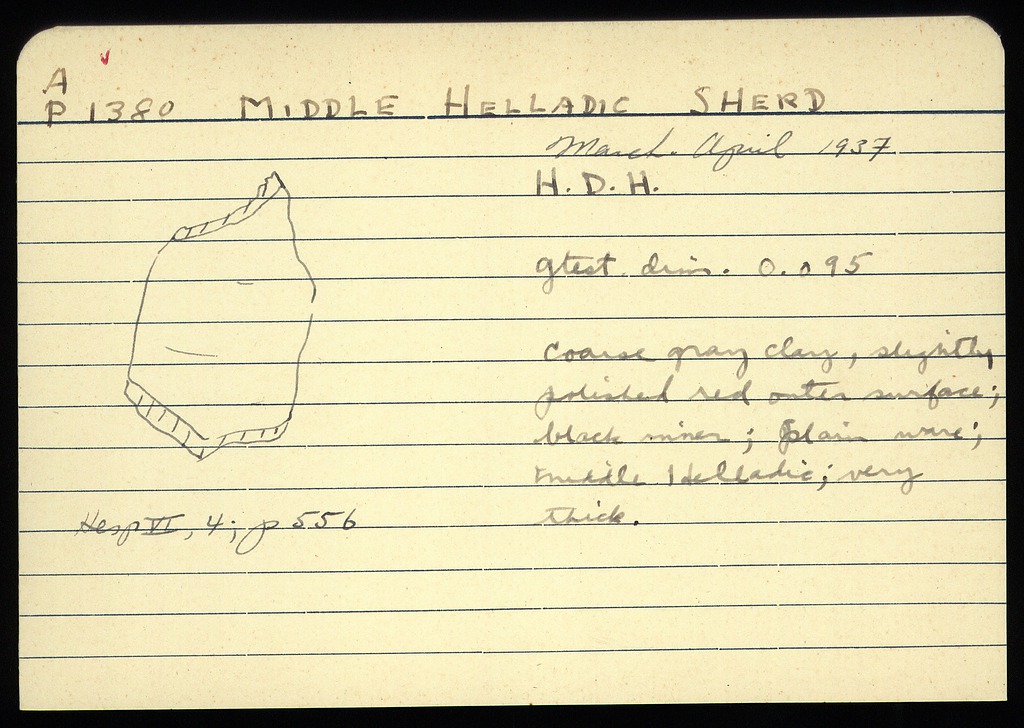 A
P 1380 MIDDLE HELLADIC SHERD
March - April 1937
H. D. H.
gtest. dim. 0.095
coarse gray clay, slightly
polished red outer surface;
black inner; plain ware;
middle Helladic; very
thick.
Hesp VI, 4; p 556